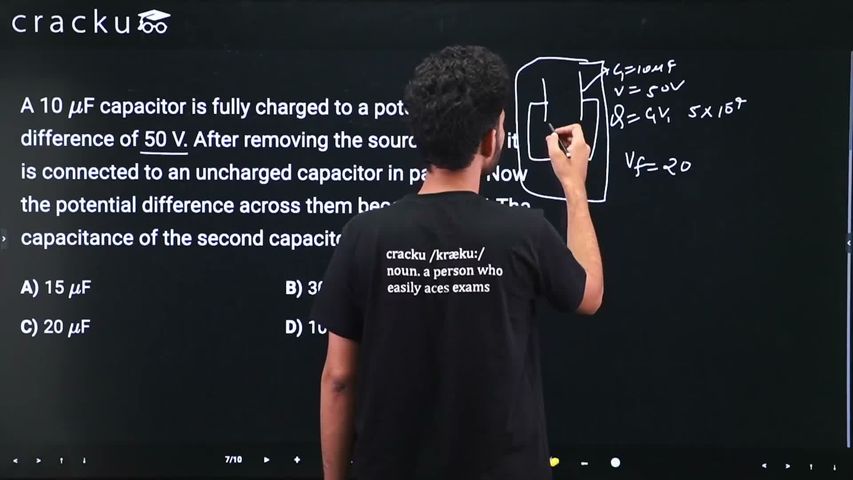 cracku
A 10 μF capacitor is fully charged to a
difference of 50 V. After removing the it
is connected to an uncharged capacitor in Now
the potential difference across them
capacitance of the second
A) 15 μF
B)
C) 20 μF
D)
C₁=10μF
V = 50V
Q = C₁V₁ 5×10²
Vf = 20
cracku /kræku:/
noun. a person who
easily aces exams
7/10